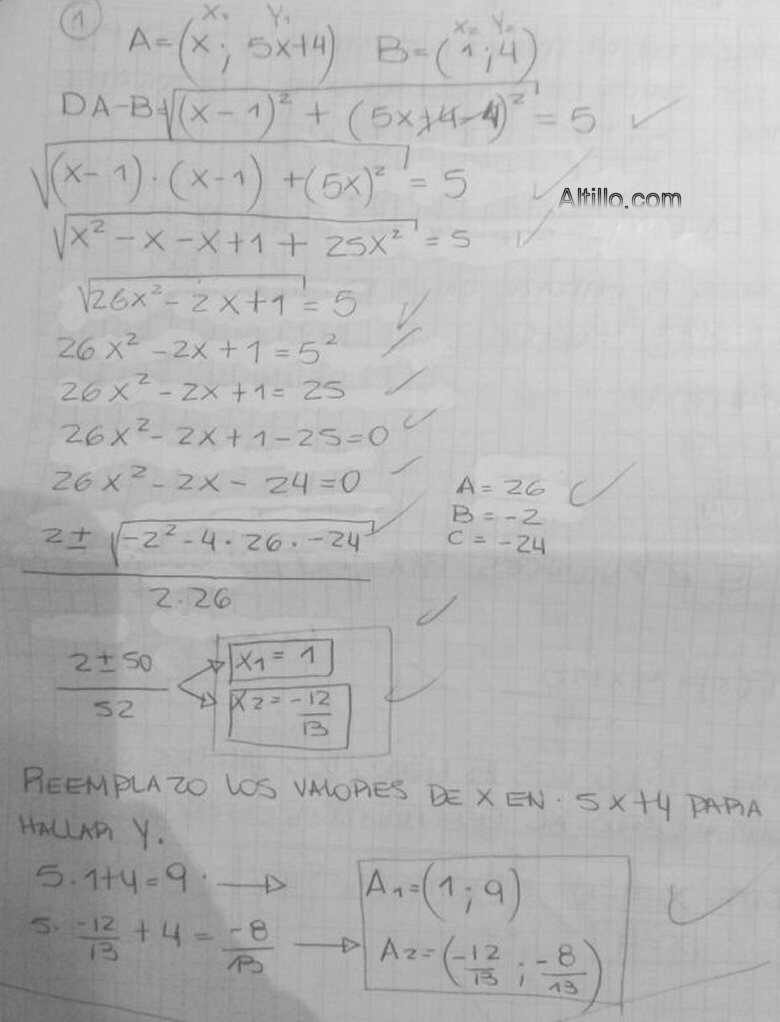 1
X₁ Y₁ X₂ Y₂
A=(X; 5X+4) B=(1;4)
DA-B=√(X-1)² + (5X+4-4)² = 5
√(X-1)·(X-1) +(5X)² = 5
Altillo.com
√X²-X-X+1+25X² = 5
√26X²-2X+1 = 5
26X²-2X+1=5²
26X²-2X+1=25
26X²-2X+1-25=0
26X²-2X-24=0
A=26
B=-2
C=-24
2±√-2²-4·26·-24
2·26
2±50
52
X₁=1
X₂=-12
13
REEMPLAZO LOS VALORES DE X EN· 5X+4 PARA
HALLAR Y.
5·1+4=9· A₁=(1;9)
5·-12/13+4=-8/13 A₂=(-12/13;-8/13)